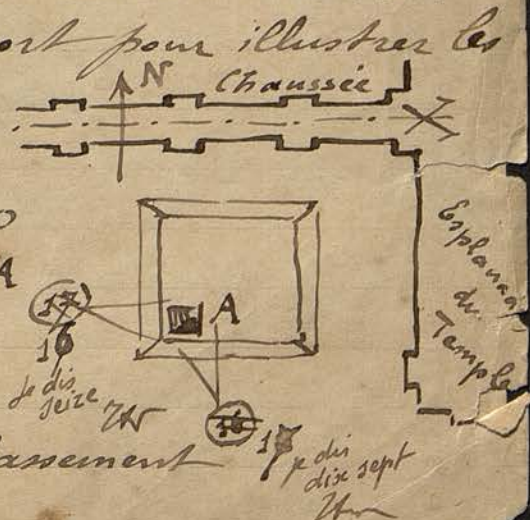 ort pour illustrer les
N
Chaussée
A
Esplanad
du
Temple
17
16
je dis
seize
A
16
17
je dis
dix sept
assement